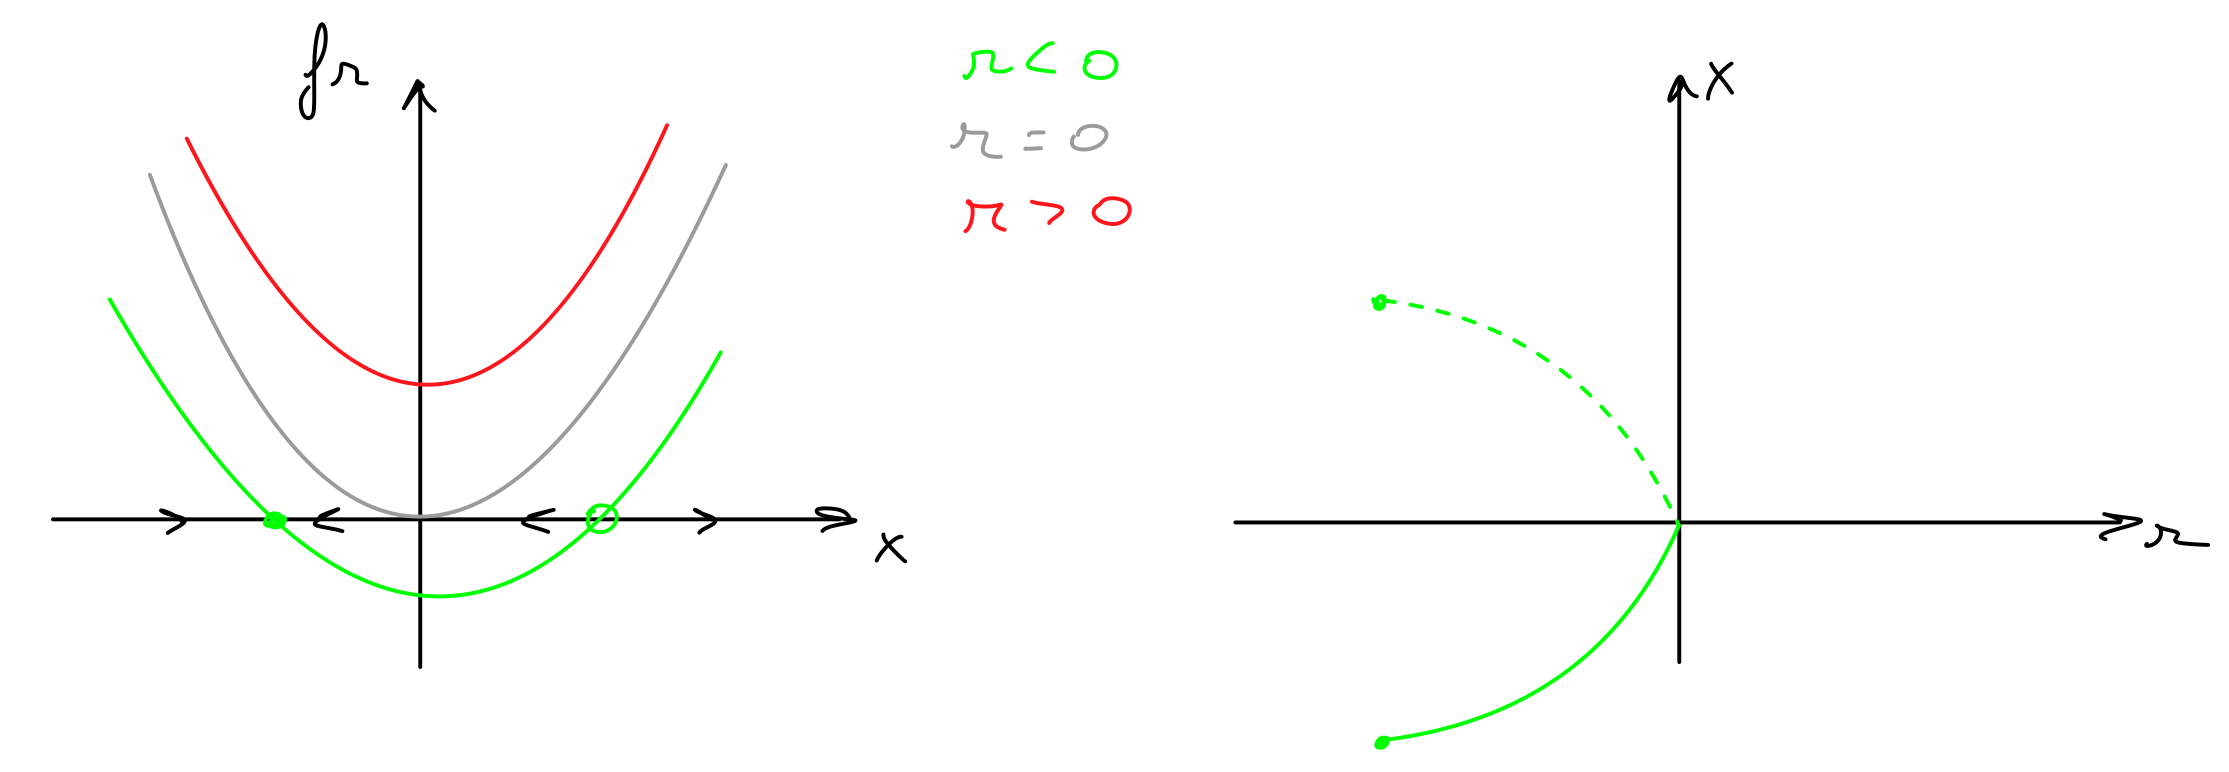 fr
r < 0
r = 0
r > 0
x
x
r